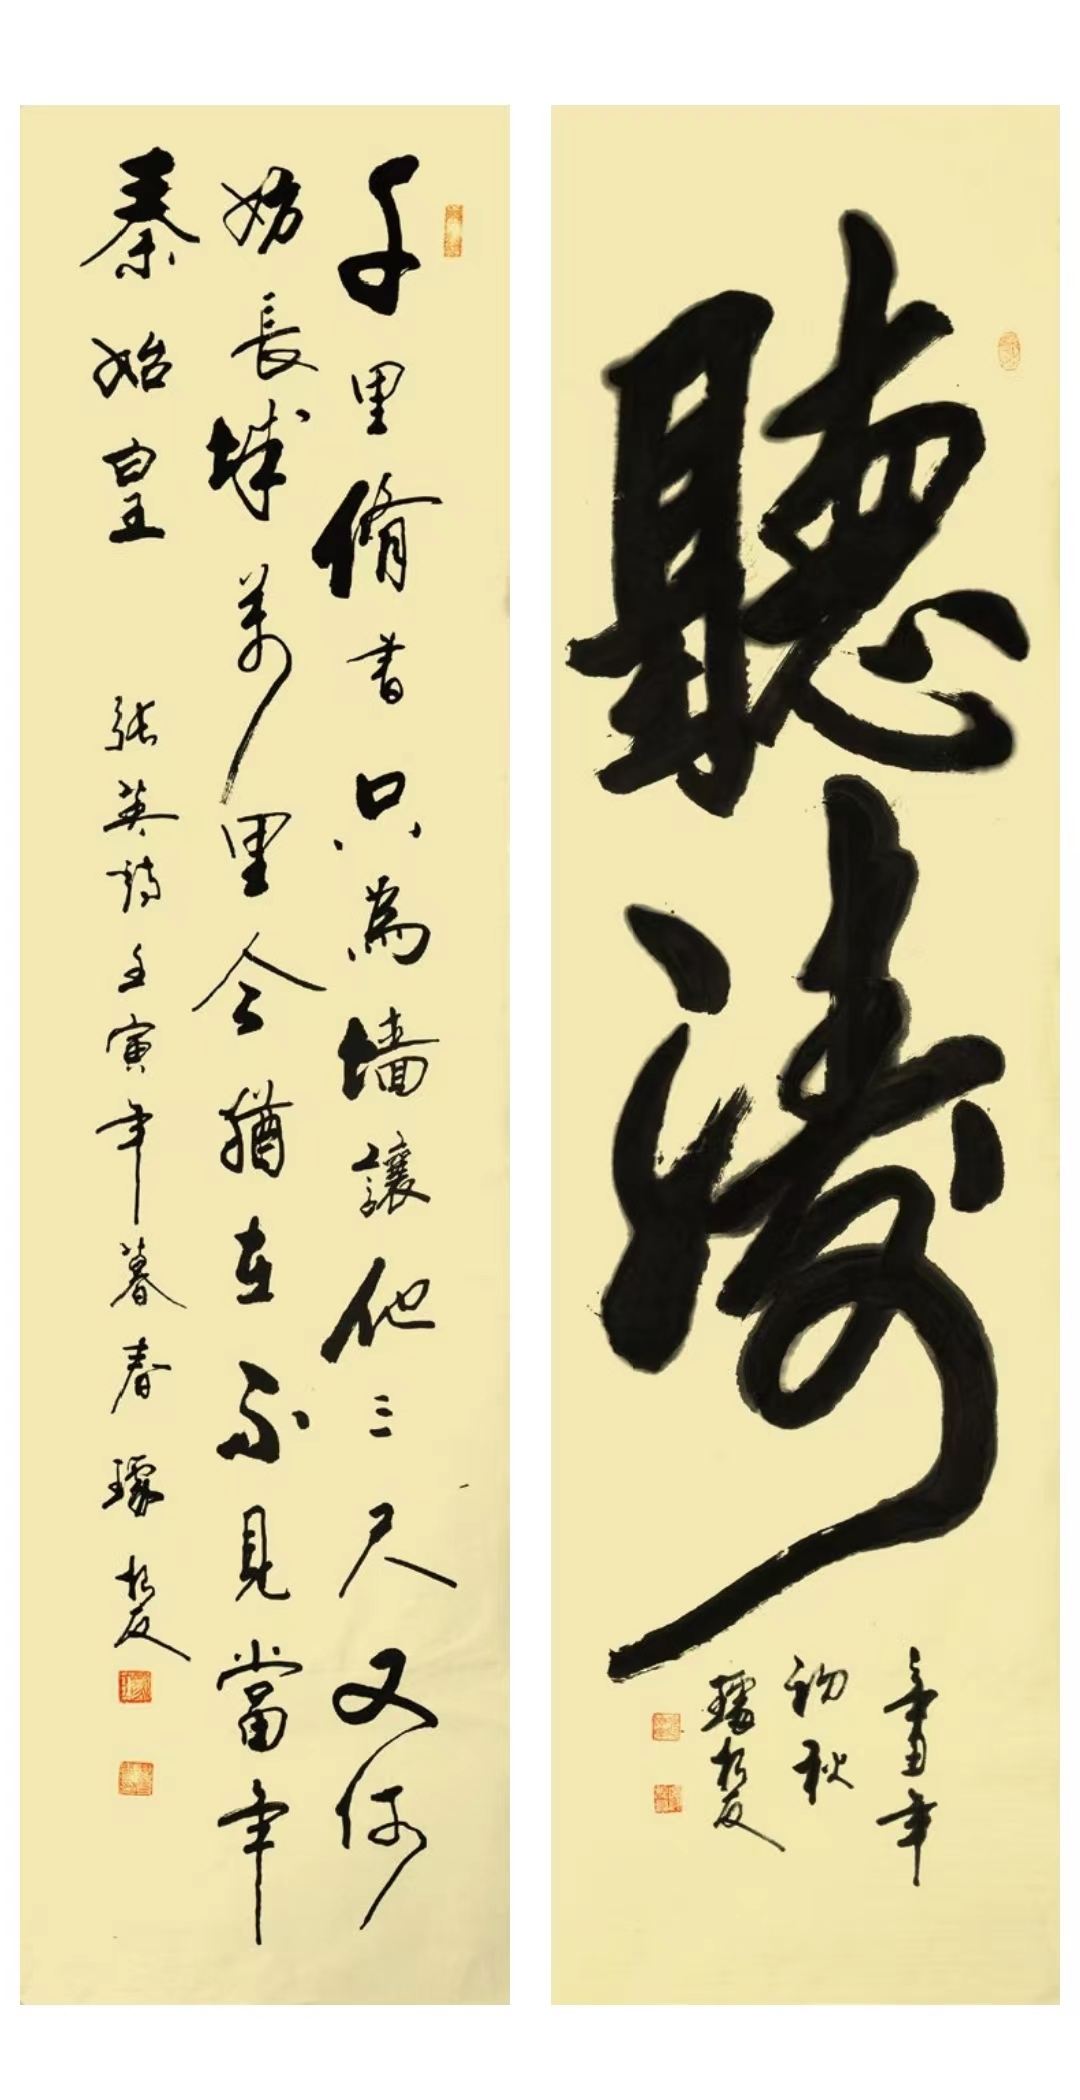 聽濤
辛丑年
初秋
璩
千里脩書只為墙讓他三尺又何
妨長城萬里今猶在不見當年
秦始皇 張英詩壬寅年暮春 璩